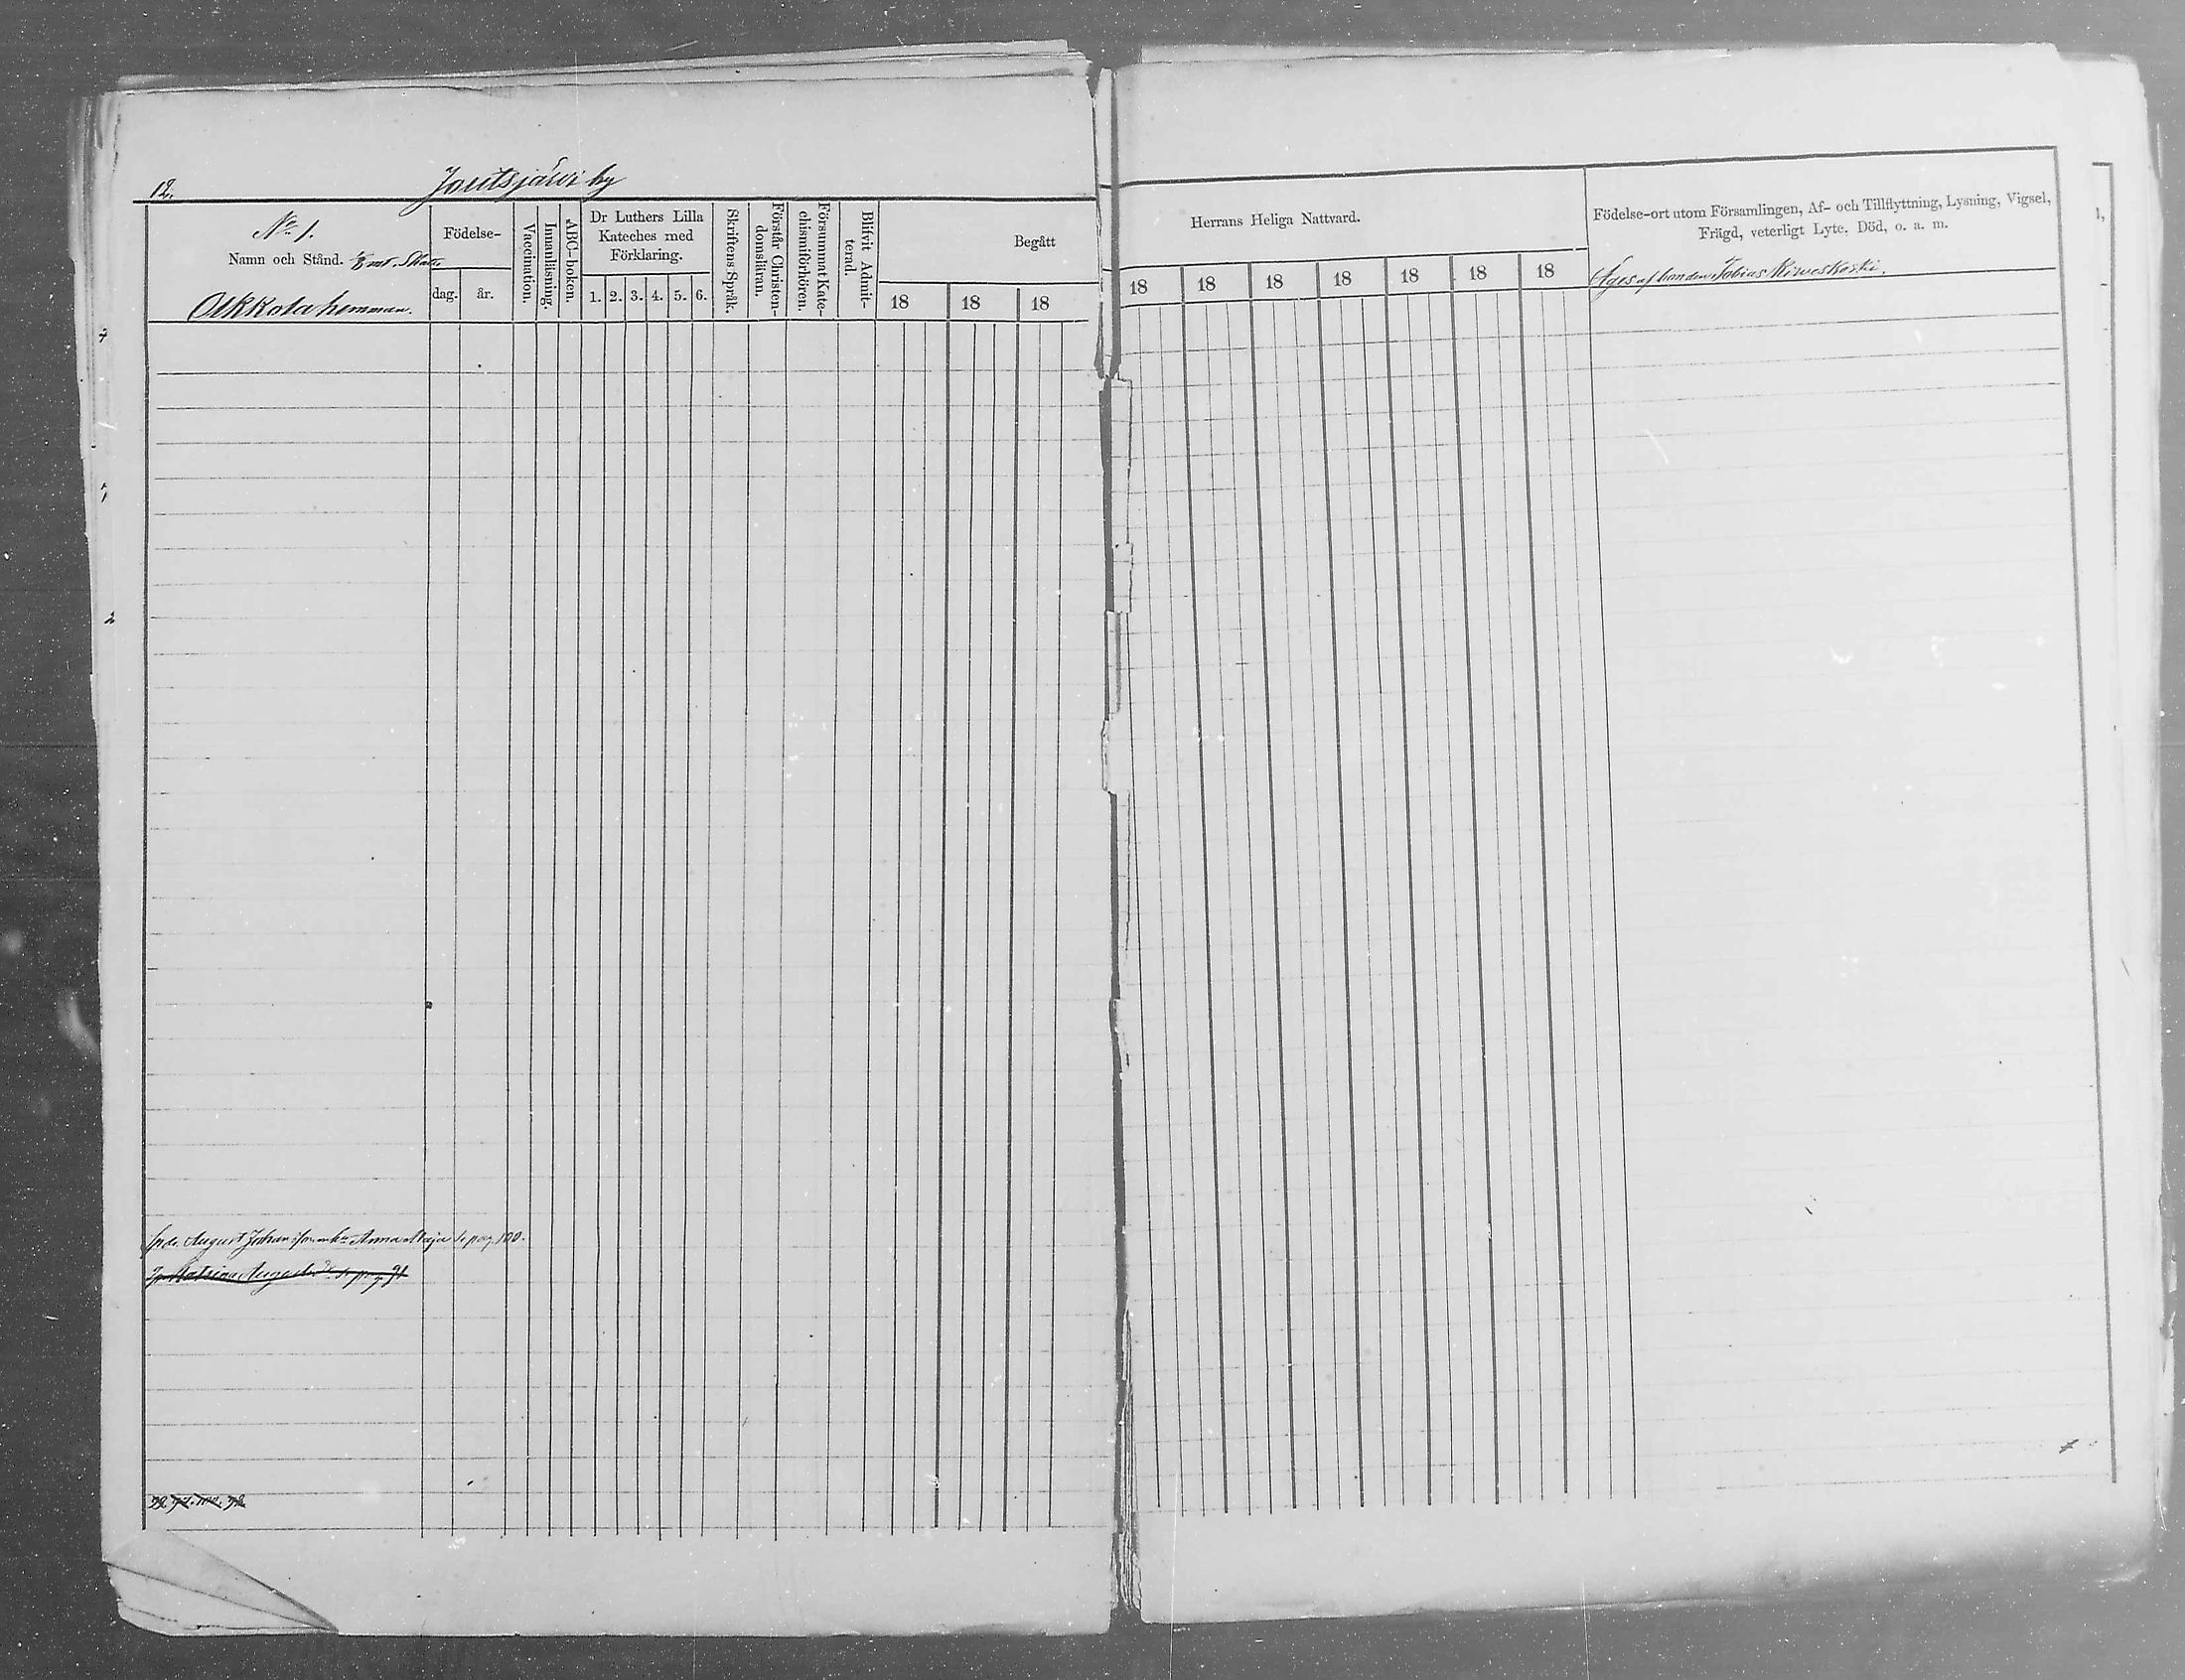 12.
Joutsjärvi by
No 1.
Namn och Stånd.
Olkkola hemman.
Födelse-
dag. år.
Vaccination.
Innanläsning.
ABC-boken.
Dr Luthers Lilla
Kateches med
Förklaring.
1. 2. 3. 4. 5. 6.
Skriftens Språk.
Förstår Christen-
domsläran.
Försummat Kate-
chismiförhören.
Blifvit Admit-
terad.
Begått
18 18 18
Herrans Heliga Nattvard.
18 18 18 18 18 18 18
Födelse-ort utom Församlingen, Af- och Tillflyttning, Lysning, Vigsel,
Frägd, veterligt Lyte, Död, o. a. m.
Äges af bonden Tobias Kirveskoski.
August Johansson Anna Maja pag. 100.